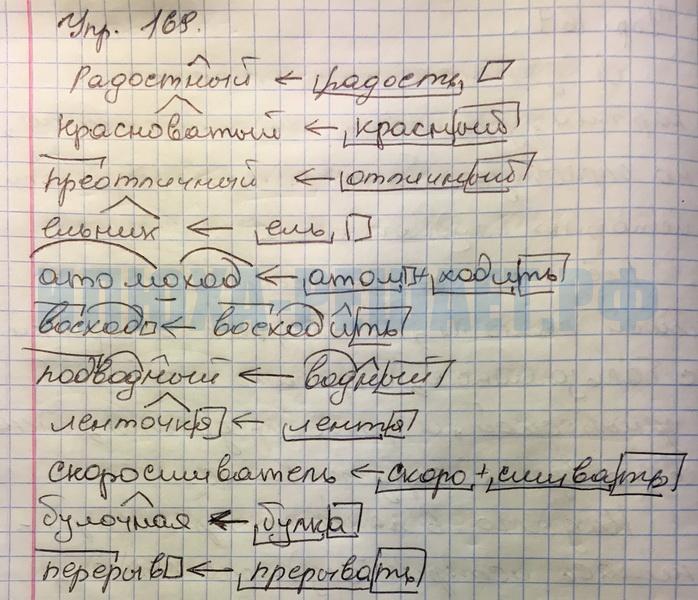 Упр. 169.
Радостный ← радость
Красноватый ← красный
преотличный ← отличный
ельник ← ель
атомоход ← атом + ходить
восход ← восходить
подводный ← водный
ленточка ← лента
скоросшиватель ← скоро + сшивать
булочная ← булка
перерыв ← прерывать